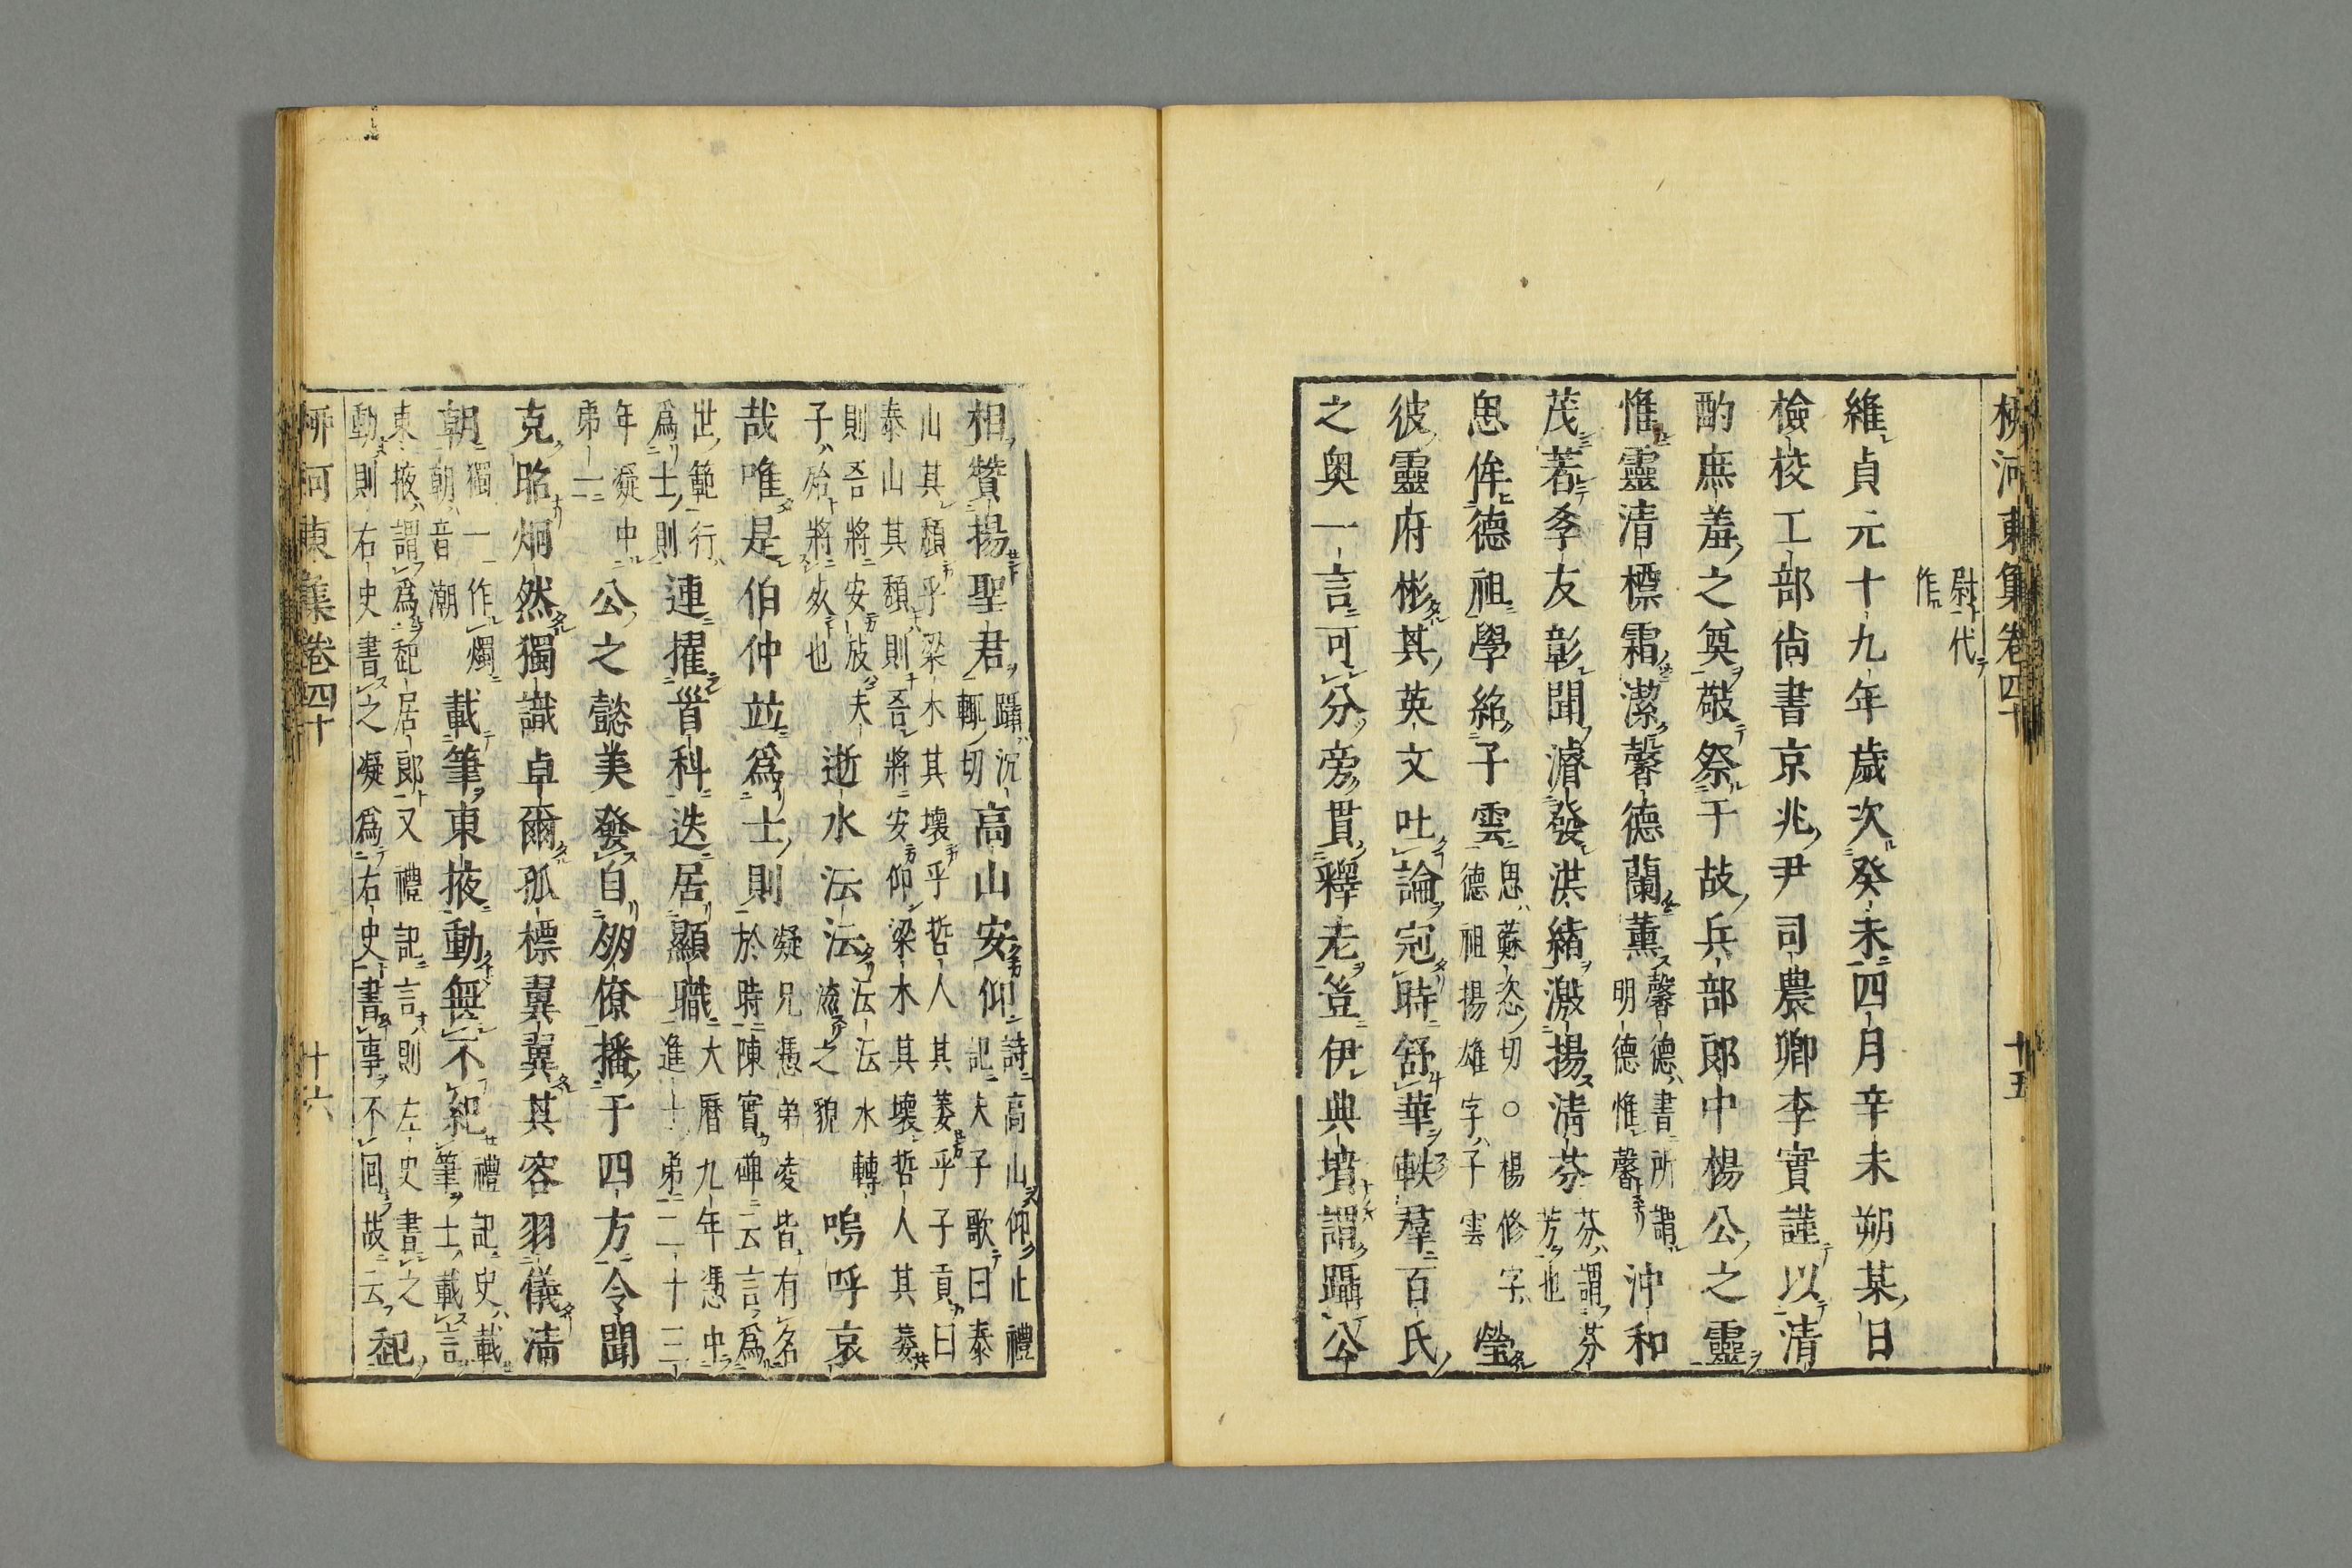 柳河東集卷四十
十五
尉代
作
維貞元十九年歲次癸未四月辛未朔某日
檢校工部尚書京兆尹司農卿李實謹以清
酌庶羞之奠敬祭于故兵部郎中楊公之靈
惟靈清標霜潔馨德蘭薰
馨德書所謂
明德惟馨
沖和
茂著孝友彰聞濬發洪緒激揚清芬
芬謂芬
芳也
思侔德祖學紹子雲
思蘇恣切○楊修字
德祖揚雄字子雲
瑩
彼靈府彬其英文吐論冠時舒華軼羣百氏
之奧一言可分旁貫釋老豈伊典墳謂躡公
相贊揚聖君
躡沉
輒切
高山安仰
詩高山仰止禮
記夫子歌曰泰
山其頹乎梁木其壞乎哲人其萎乎子貢曰
泰山其頹則吾將安仰梁木其壞哲人其萎
則吾將安放夫
子殆將病也
逝水沄沄
沄沄水轉
流之貌
嗚呼哀
哉唯是伯仲竝爲士則
凝兄憑弟凌皆有名
於時陳實碑云言爲
世範行
爲士則
連擢首科迭居顯職
大曆九年憑中
進士弟二十三
年凝中
弟一
公之懿美發自朋僚播于四方令聞
克昭炯然獨識卓爾孤標翼翼其容羽儀清
朝
獨一作燭
朝音潮
載筆東掖動無不紀
禮記史載
筆士載言
東掖謂爲起居郎又禮記言則左史書之
動則右史書之凝爲右史書事不回故云
起
柳河東集卷四十
十六